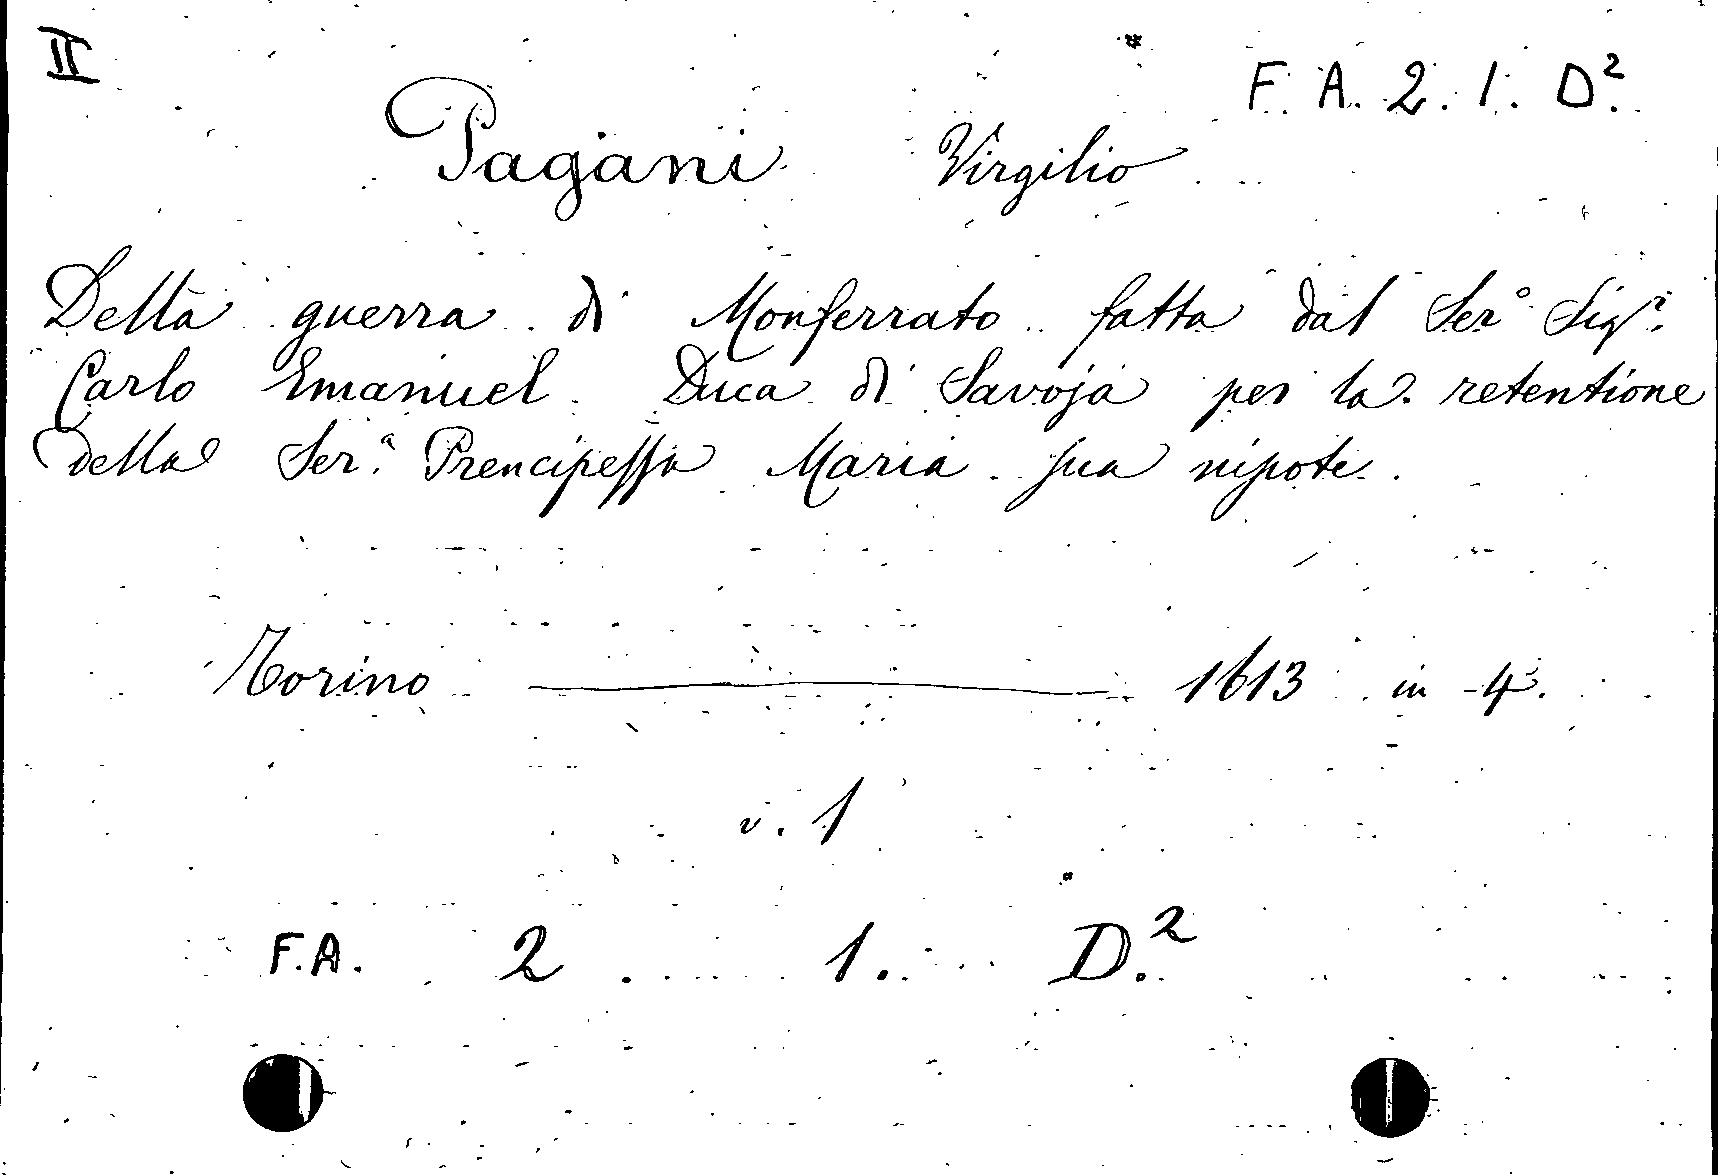 II
F. A. 2. 1. D.²
Pagani Virgilio
Della guerra di Monferrato fatta dal Ser.° Sig.r
Carlo Emanuel Duca di Savoja per la retentione
della Ser.ª Prencipeſſa Maria ſua nipote.
Torino 1613 in 4°.
v. 1
F.A. 2. 1. D.²